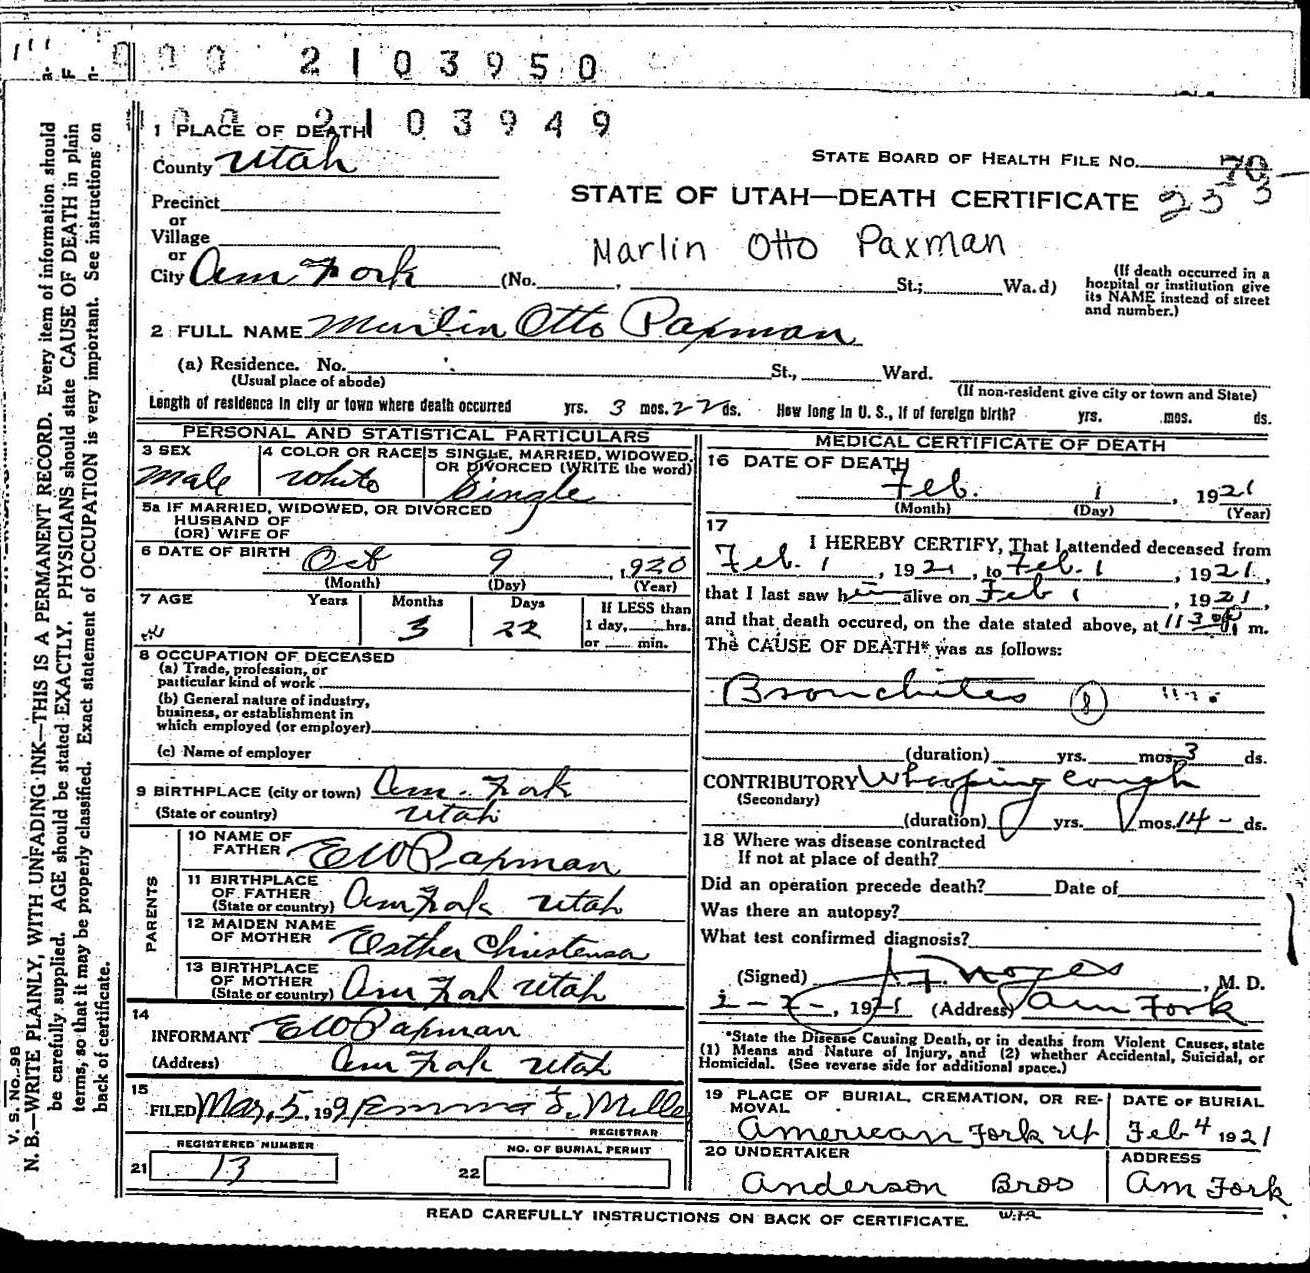 000 2103950
000 2103949
1 PLACE OF DEATH
County Utah
STATE BOARD OF HEALTH FILE NO. 70
STATE OF UTAH—DEATH CERTIFICATE 253
Precinct
or
Village
or
City Am Fork (No. , St.; Wa.d)
Marlin Otto Paxman
(If death occurred in a
hospital or institution give
its NAME instead of street
and number.)
2 FULL NAME Marlin Otto Paxman
(a) Residence. No. St., Ward.
(Usual place of abode) (If non-resident give city or town and State)
Length of residence in city or town where death occurred yrs. 3 mos. 22 ds. How long in U. S., if of foreign birth? yrs. mos. ds.
PERSONAL AND STATISTICAL PARTICULARS
3 SEX Male
4 COLOR OR RACE White
5 SINGLE, MARRIED, WIDOWED,
OR DIVORCED (WRITE the word)
Single
5a IF MARRIED, WIDOWED, OR DIVORCED
HUSBAND OF
(OR) WIFE OF
6 DATE OF BIRTH Oct 9, 1920
(Month) (Day) (Year)
7 AGE Years Months Days If LESS than
3 22 1 day, hrs.
or min.
8 OCCUPATION OF DECEASED
(a) Trade, profession, or
particular kind of work
(b) General nature of industry,
business, or establishment in
which employed (or employer)
(c) Name of employer
9 BIRTHPLACE (city or town) Am. Fork
(State or country) Utah
PARENTS
10 NAME OF
FATHER E W Paxman
11 BIRTHPLACE
OF FATHER
(State or country) Am Fork Utah
12 MAIDEN NAME
OF MOTHER Esther Christensen
13 BIRTHPLACE
OF MOTHER
(State or country) Am Fork Utah
14
INFORMANT E W Paxman
(Address) Am Fork Utah
15
FILED Mar. 5, 1921 Emma S. Mille
REGISTRAR
REGISTERED NUMBER
21 13
NO. OF BURIAL PERMIT
22
MEDICAL CERTIFICATE OF DEATH
16 DATE OF DEATH
Feb. 1, 1921
(Month) (Day) (Year)
17
I HEREBY CERTIFY, That I attended deceased from
Feb. 1, 1921, to Feb. 1, 1921,
that I last saw him alive on Feb 1, 1921,
and that death occured, on the date stated above, at 1130 m.
The CAUSE OF DEATH* was as follows:
Bronchites 8
(duration) yrs. mos. 3 ds.
CONTRIBUTORY Whooping cough
(Secondary)
(duration) yrs. mos. 14 - ds.
18 Where was disease contracted
If not at place of death?
Did an operation precede death? Date of
Was there an autopsy?
What test confirmed diagnosis?
(Signed) Noyes, M. D.
2-2-, 1921 (Address) Am Fork
*State the Disease Causing Death, or in deaths from Violent Causes, state
(1) Means and Nature of Injury, and (2) whether Accidental, Suicidal, or
Homicidal. (See reverse side for additional space.)
19 PLACE OF BURIAL, CREMATION, OR RE-
MOVAL
American Fork Ut
DATE OF BURIAL
Feb 4 1921
20 UNDERTAKER
Anderson Bros
ADDRESS
Am Fork
READ CAREFULLY INSTRUCTIONS ON BACK OF CERTIFICATE.
V. S. No. 98
N. B.—WRITE PLAINLY, WITH UNFADING INK—THIS IS A PERMANENT RECORD. Every item of information should
be carefully supplied. AGE should be stated EXACTLY. PHYSICIANS should state CAUSE OF DEATH in plain
terms, so that it may be properly classified. Exact statement of OCCUPATION is very important. See instructions on
back of certificate.